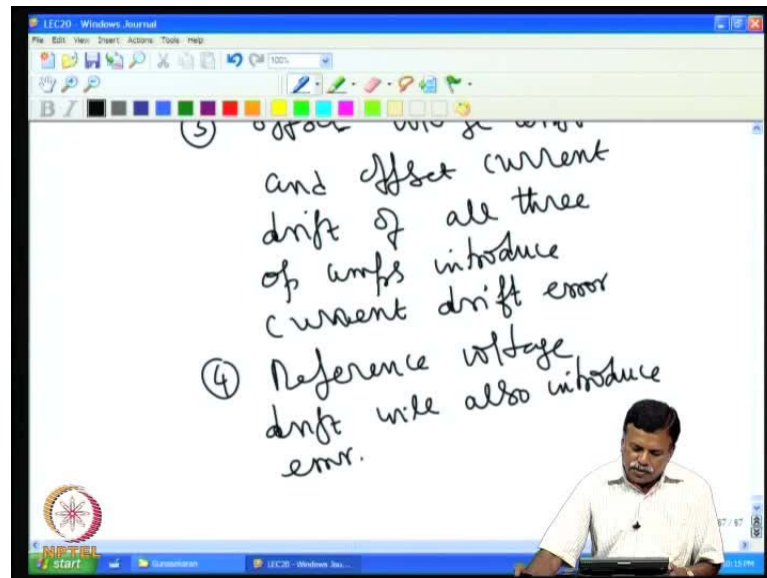 LEC20 - Windows Journal
File Edit View Insert Actions Tools Help
100%
B I
and offset current
drift of all three
op amps introduce
current drift error
④ Reference voltage
drift will also introduce
error.
67 / 67
NPTEL
start Gunasekaran LEC20 - Windows Jou...